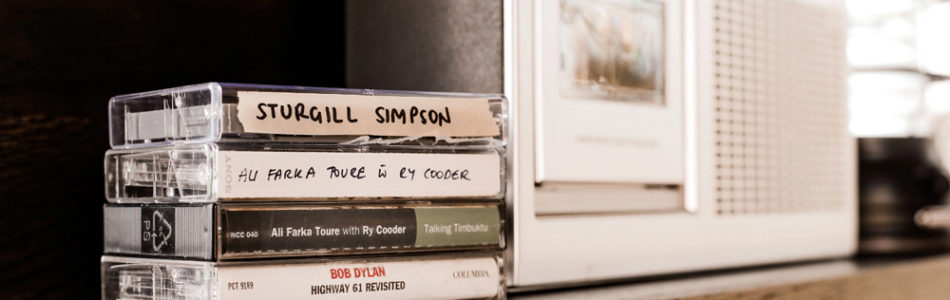 STURGILL SIMPSON
SONY
ALI FARKA TOURE W̄ RY COODER
PS
WCC 040 Ali Farka Toure with Ry Cooder Talking Timbuktu
BOB DYLAN
PCT 9189 HIGHWAY 61 REVISITED COLUMBIA